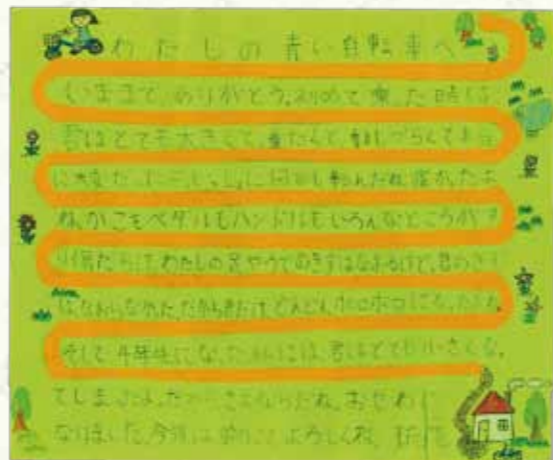 わたしの青い自転車へ
いままで、ありがとう。初めて乗った時は
君はとても大きくて、重たくて、動かしづらくて本当
に大変だった。いっしょに何回も転んだね。痛かったよ
ね。かごもペダルもハンドルもいろんなところがす
り傷だらけ。わたしの足やうでのきずはなおるけど、君のきず
はなおらなかった。だから君だけ、どんどんボロボロになったよね。
そして4年生になったわたしには、君はとても小さくな
てしまったよ。だからさよならだね。おせわに
なりました。今度は弟によろしくね。